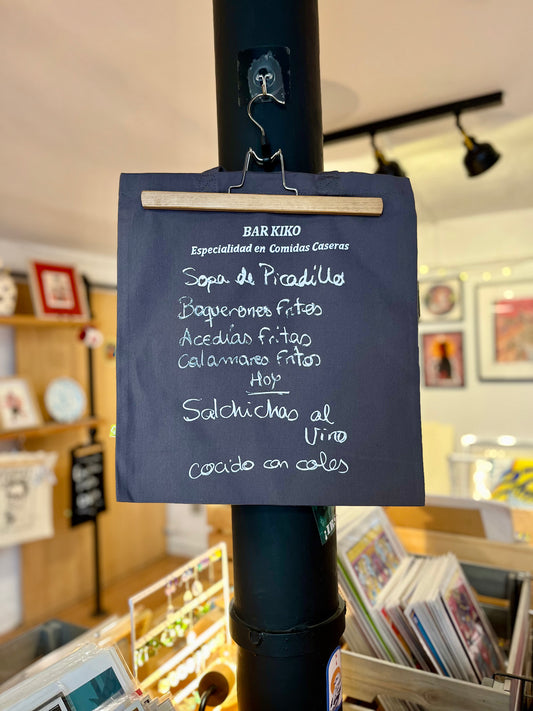 BAR KIKO
Especialidad en Comidas Caseras
Sopa de Picadillo
Boquerones Fritos
Acedías Fritas
Calamares Fritos
Hoy
Salchichas al
Vino
Cocido con coles